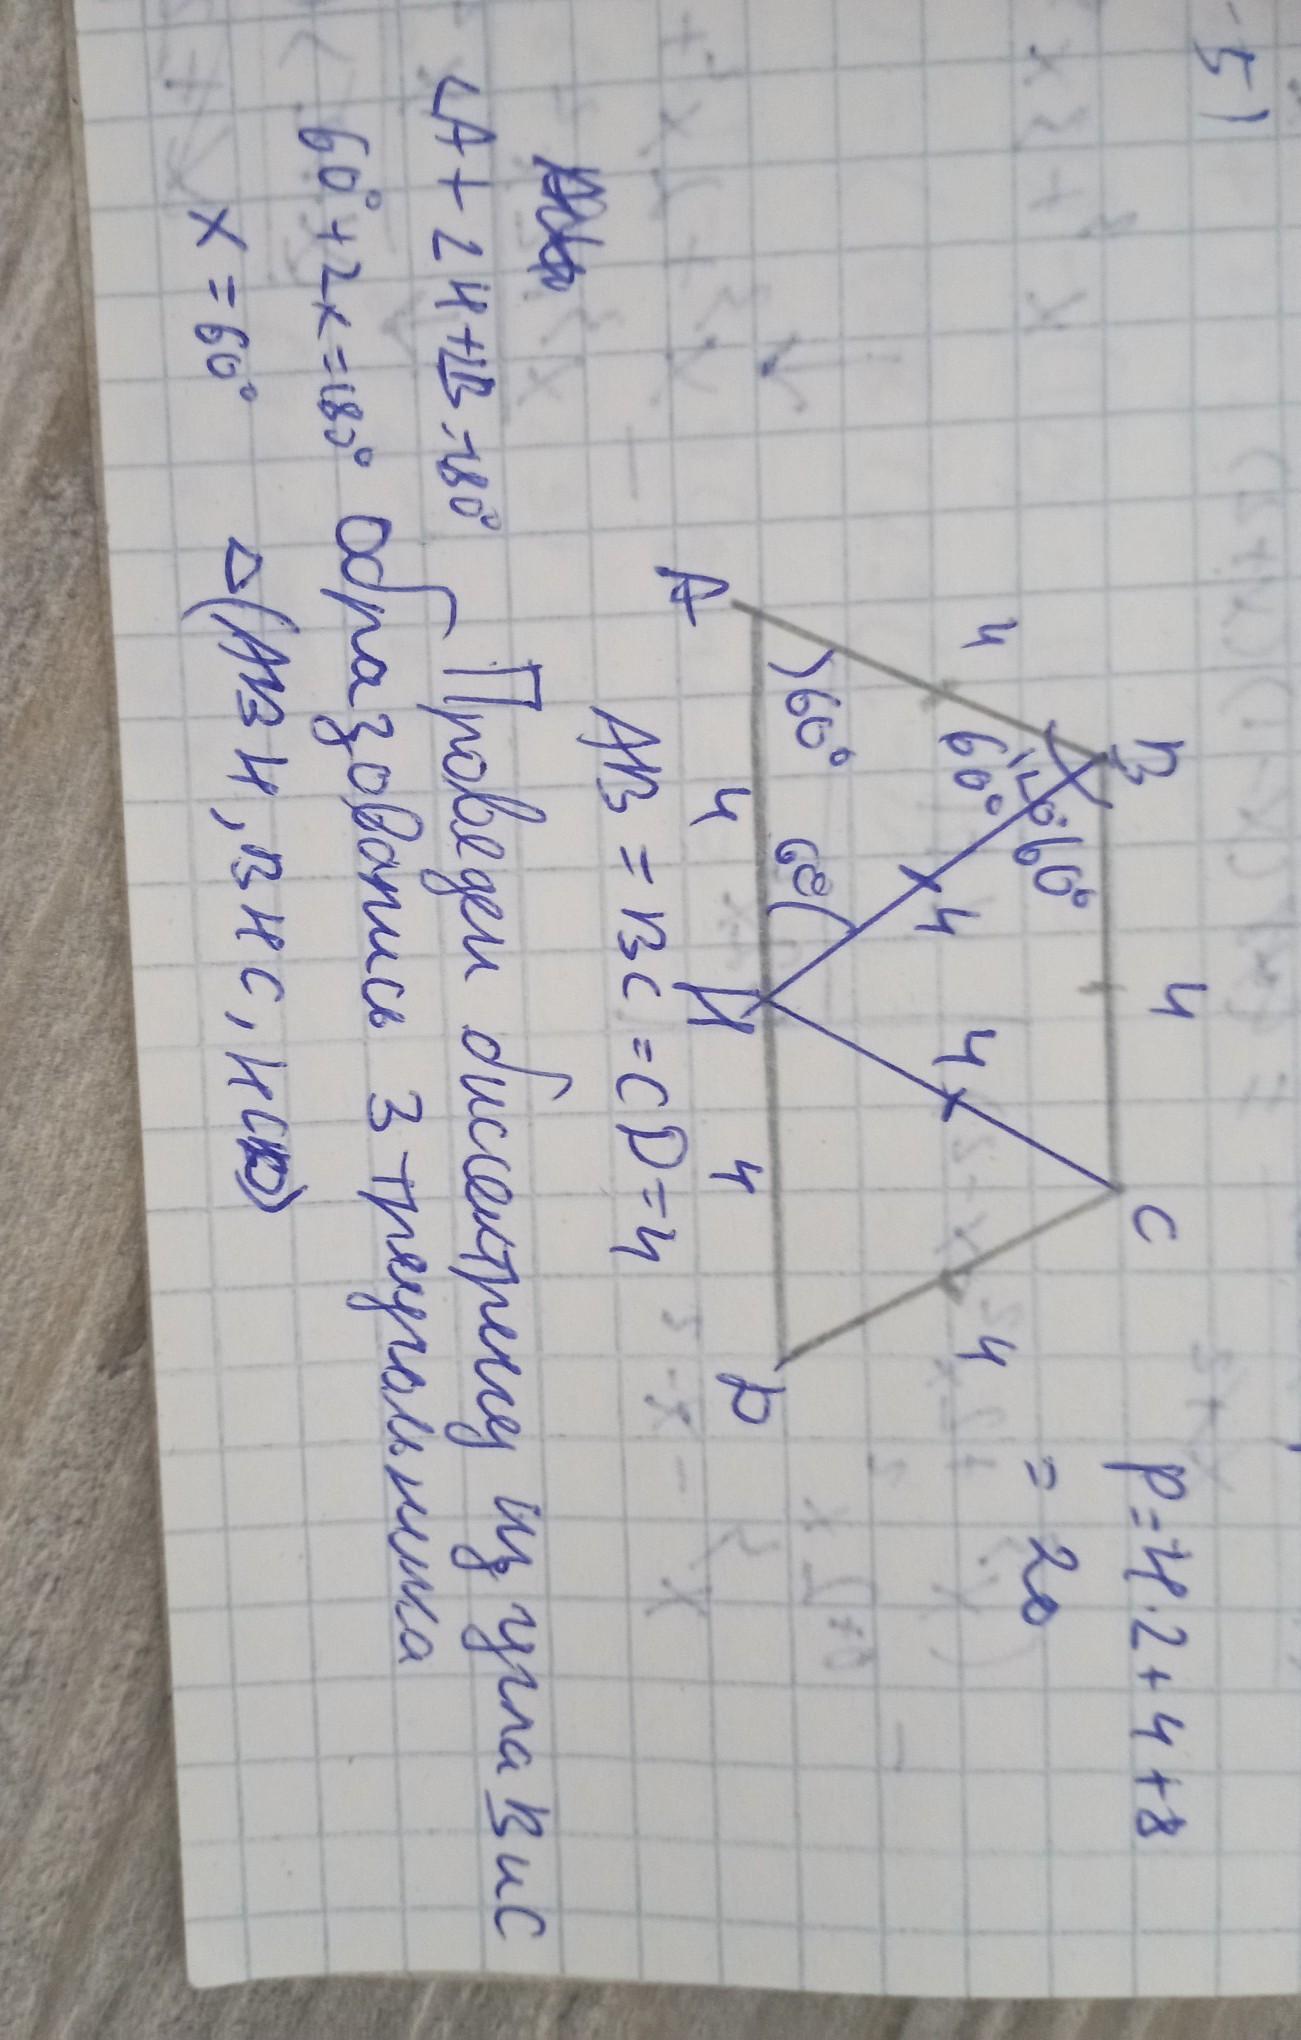 5)
P=4·2+4+8
= 20
B
C
4
4
120°
60°
60°
4
4
4
60°
60°
A
4
H
4
D
AB = BC = CD = 4
Проведем биссектрису из угла B и C
образовались 3 треугольника
△(ABH, BHC, HCD)
∠A+ ∠H+∠B=180°
60°+2x=180°
x = 60°